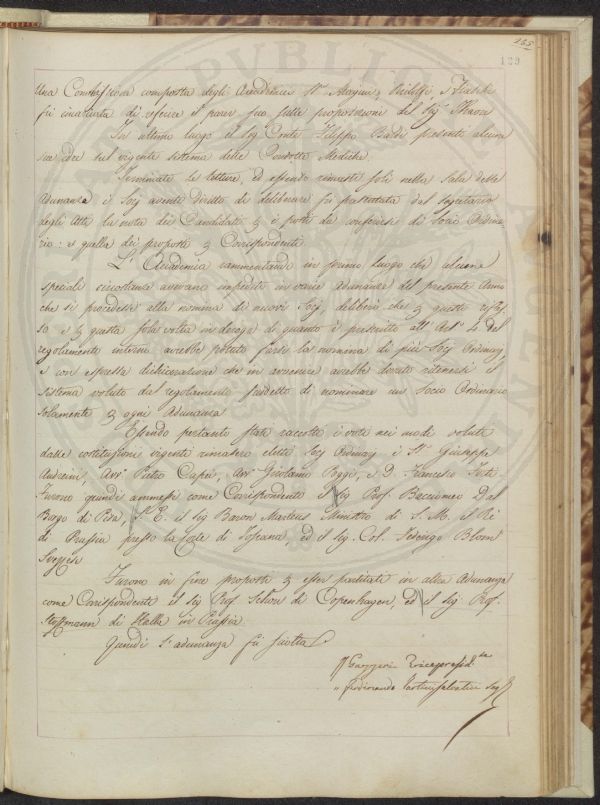 265
129
Una Commissione composta degli Accademici Sri Magini, Ridolfi e
fu incaricata di riferire il parer suo sulle proposizioni del Sig.
In ultimo luogo il Sig Conte Filippo Bardi presentò alcune
sue idee sul vigente sistema delle Condotte Mediche.
Terminate le letture, ed essendo rimasti soli nella Sala delle
Adunanze i Socj aventi diritto di deliberare fu presentata dal Segretario
degli Atti la nota dei Candidati e i posti da conferirsi di Socio Ordina
rio: e quella dei proposti Corrispondenti.
L'Accademia rammentando in primo luogo che alcune
speciali circostanze avevano impedito in varie adunanze del presente Anno
che si procedesse alla nomina di nuovi Socj deliberò, che questo
so e questa sola volta in deroga di quanto è prescritto all'Arto 4 del
regolamento interno avrebbe potuto farsi la nomina di più Socj Ordinarj,
e con espressa dichiarazione che in avvenire avrebbe dovuto ritenersi il
sistema voluto dal regolamento suddetto di nominare un Socio Ordinario
solamente ogni Adunanza.
Essendo pertanto state raccolte i voti nei modi voluti
dalle costituzioni vigenti rimasero eletti Socj Ordinarj i Sri Giuseppe
Andreini, Avvo Pietro Capei, Avvo Girolamo Poggi, e D. Francesco
Furono quindi ammessi come Corrispondenti il Sig Prof. Dal
Borgo di Pisa, S. E. il Sig Baron Martens Ministro di S. M. il Re
di Prussia presso la Corte di Toscana, ed il Sig. Col. Federigo Blom
Svezzese
Furono in fine proposti esser partitati in altra Adunanza
come Corrispondenti il Sig Prof. Schow di Copenhagen, ed il Sig Prof.
di Halla in Prussia.
Quindi l'adunanza fu sciolta.
Gazzeri Vicepresidte
Ferdinando Tartini Salvatici Segr